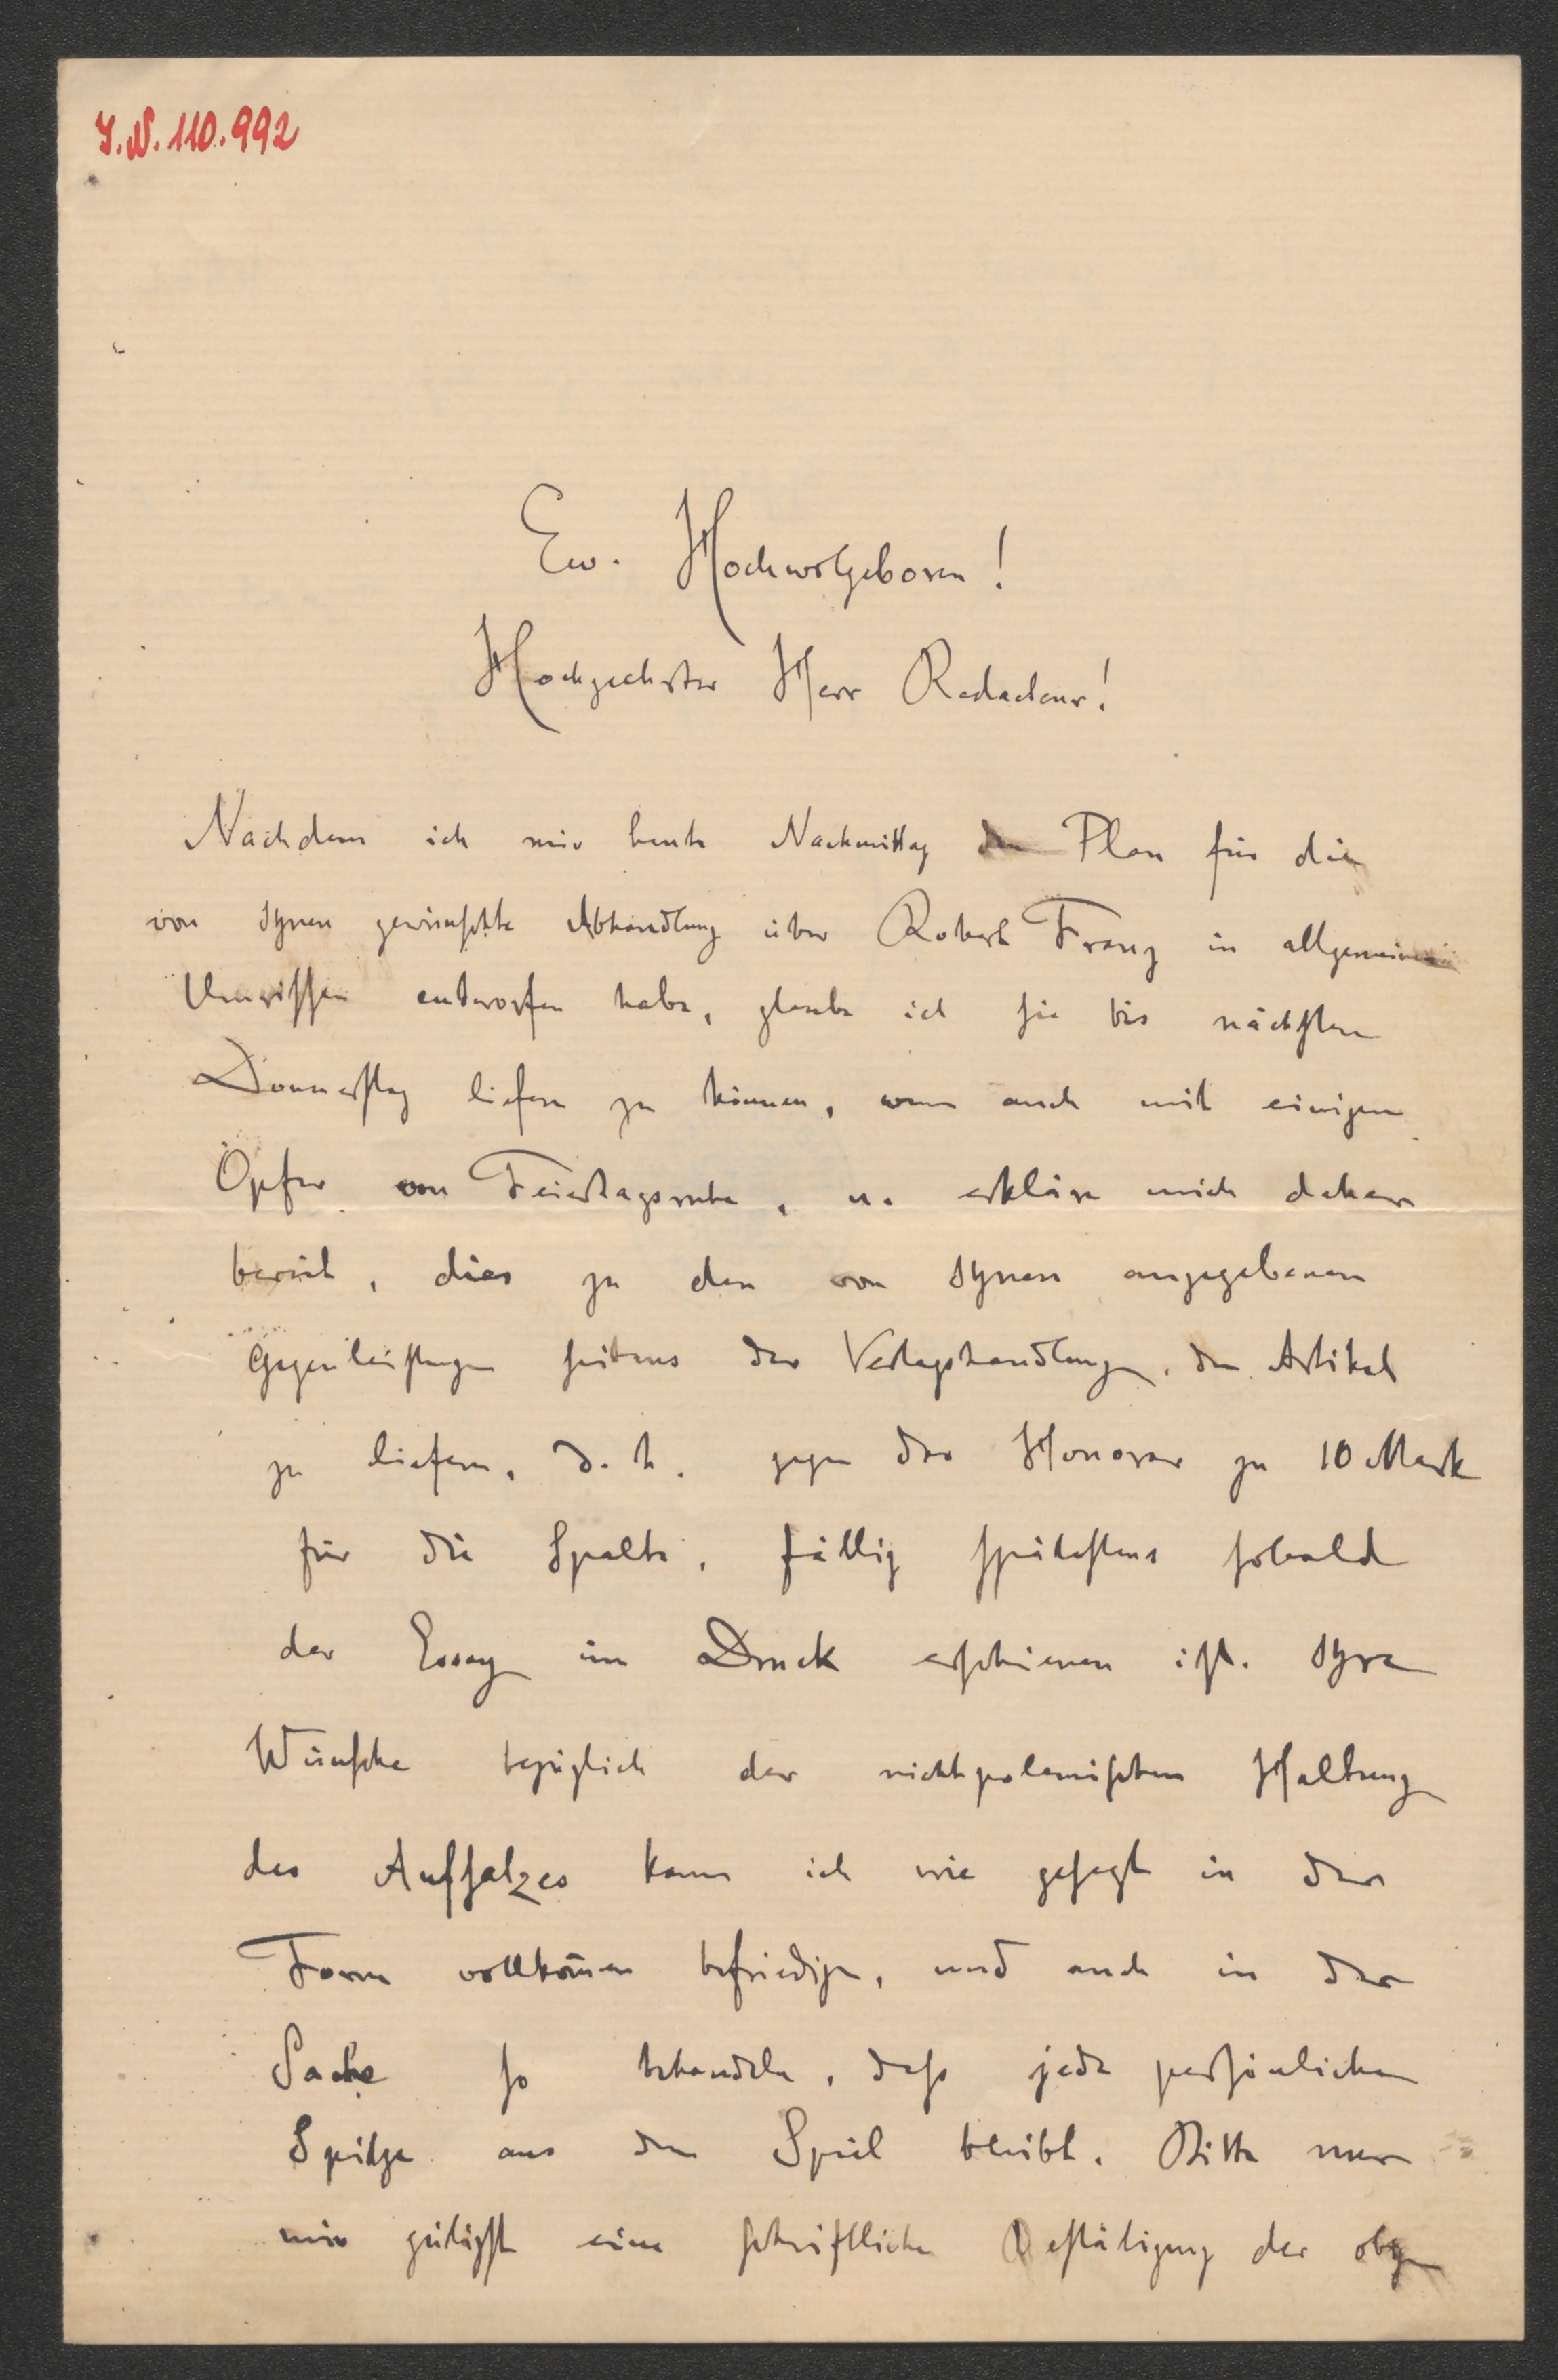 I.N. 110.992
Ew. Hochwolgeboren!
Hochgeehrter Herr Redacteur!
Nachdem ich mir heute Nachmittag den Plan für die
von Ihnen gewünschte Abhandlung über Robert Franz in allgemeinen
Umrissen entworfen habe, glaube ich sie bis nächsten
Donnerstag liefern zu können, wenn auch mit einigem
Opfer von Feiertagsruhe, u. erkläre mich daher
bereit, dies zu den von Ihnen angegebenen
Gegenleistungen seitens der Verlagshandlung, den Artikel
zu liefern, d. h. gegen das Honorar zu 10 Mark
für die Spalte, fällig spätestens sobald
der Essay im Druck erschienen ist. Ihre
Wünsche bezüglich der nichtpolemischen Haltung
des Aufsatzes kann ich wie gesagt in der
Form vollkom̄en befriedigen, und auch in der
Sache so behandeln, dass jede persönliche
Spitze aus dem Spiel bleibt. Bitte nur
mir gütigst eine schriftliche Bestätigung der obigen